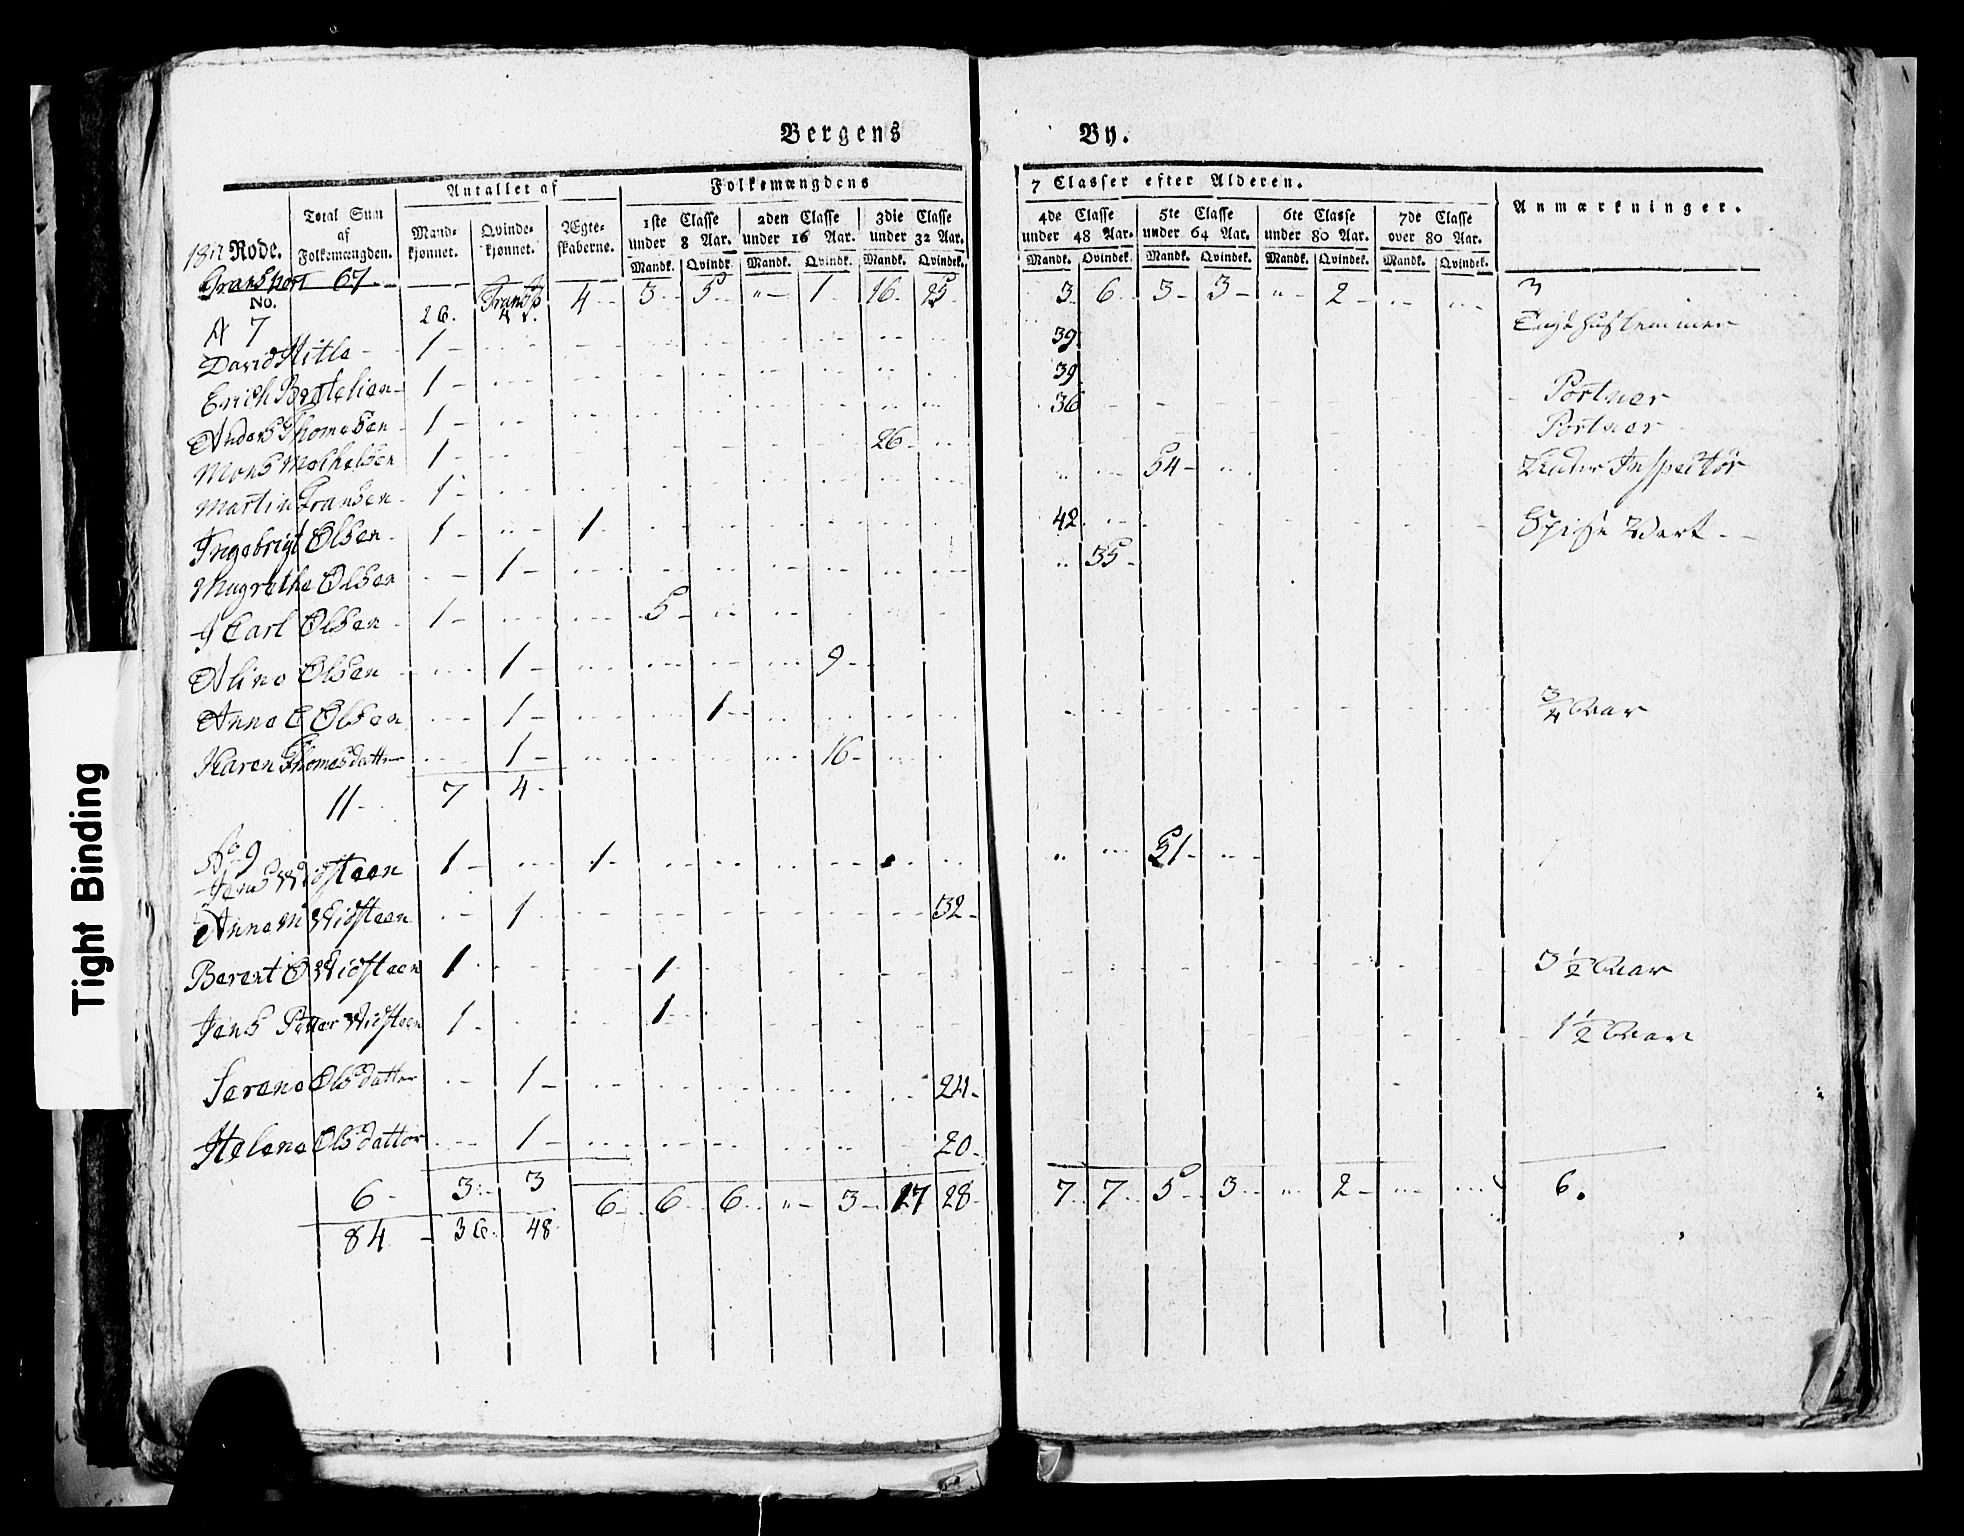 Bergens By.
18n Rode.
Total Sum af Folkemængden.
Antallet af
Mandkjønnet. Qvindekjønnet. Ægteskaberne.
Folkemængdens 7 Classer efter Alderen.
1ste Classe under 8 Aar. 2den Classe under 16 Aar. 3die Classe under 32 Aar. 4de Classe under 48 Aar. 5te Classe under 64 Aar. 6te Classe under 80 Aar. 7de Classe over 80 Aar.
Mandk. Qvindk. Mandk. Qvindk. Mandk. Qvindek. Mandk. Qvindek. Mandk. Qvindek. Mandk. Qvindek. Mandk. Qvindek.
Anmærkninger.
Transport 67 26. Transp 4 3 5 " 1 16 25 3 6 3 3 " 2 3
No.
7
David 1 39
Erich Bertelsen 1 39 Portner
Anders Thomesen 1 36 Portner
Mons Michelsen 1 26 Under Inspectør
Martin Fransen 1 54
Ingebrigt Olsen 1 1 42 Spise Vert
Magrethe Olsen 1 35
J Carl Olsen 1 5
Aline Olsen 1 9
Anne C Olsen 1 1 3/4 Aar
Karen Thomesdatter 1 16
11 7 4
No 9
Jens Widsteen 1 1 51
Anne M Widsteen 1 32
Berent O Widsteen 1 1 3 1/2 Aar
Jens Petter Widsteen 1 1 1 1/2 Aar
Serene Olsdatter 1 24
Helene Olsdatter 1 20
6 3 3 6 6 6 " 3 17 28 7 7 5 3 " 2 6.
84 36 48
Tight Binding